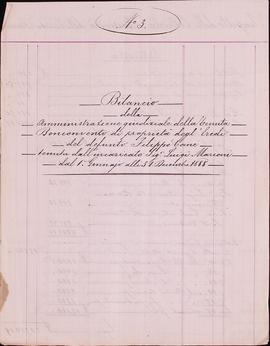 N° 3.
Bilancio
della
Amministrazione giudiziale della Tenuta
Bonconvento di proprietà degl'Eredi
del defunto Filippo Cane
tenuta dall'incaricato Sig. Luigi Marconi
dal 1° Gennajo alli 31 Dicembre 1888